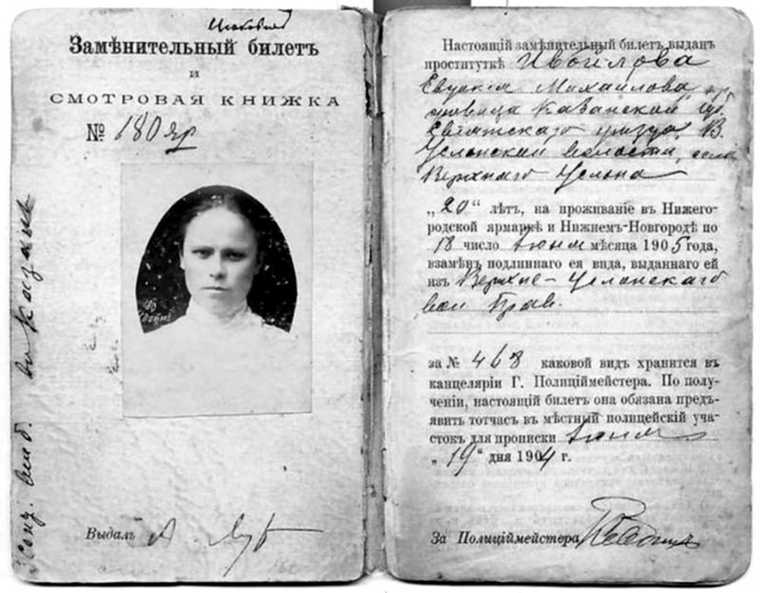 Замѣнительный билетъ
и
СМОТРОВАЯ КНИЖКА
№ 180 яр
Выдалъ А.
въ Казани
Настоящій замѣнительный билетъ выданъ
проституткѣ Ивойлова
Евдокія Михайлова
Казанской губ
уѣзда, В.
Услонской волости, села
Верхняго Услона
„20“ лѣтъ, на проживаніе въ Нижего-
родской ярмаркѣ и Нижнемъ-Новгородѣ по
18 число Іюня мѣсяца 1905 года,
взамѣнъ подлиннаго ея вида, выданнаго ей
изъ Верхне-Услонскаго
вол Прав.
за № 468 каковой видъ хранится въ
канцеляріи Г. Полиціймейстера. По полу-
ченіи, настоящій билетъ она обязана предъ-
явить тотчасъ въ мѣстный полицейскій уча-
стокъ для прописки Іюня
„19“ дня 1904 г.
За Полиціймейстера